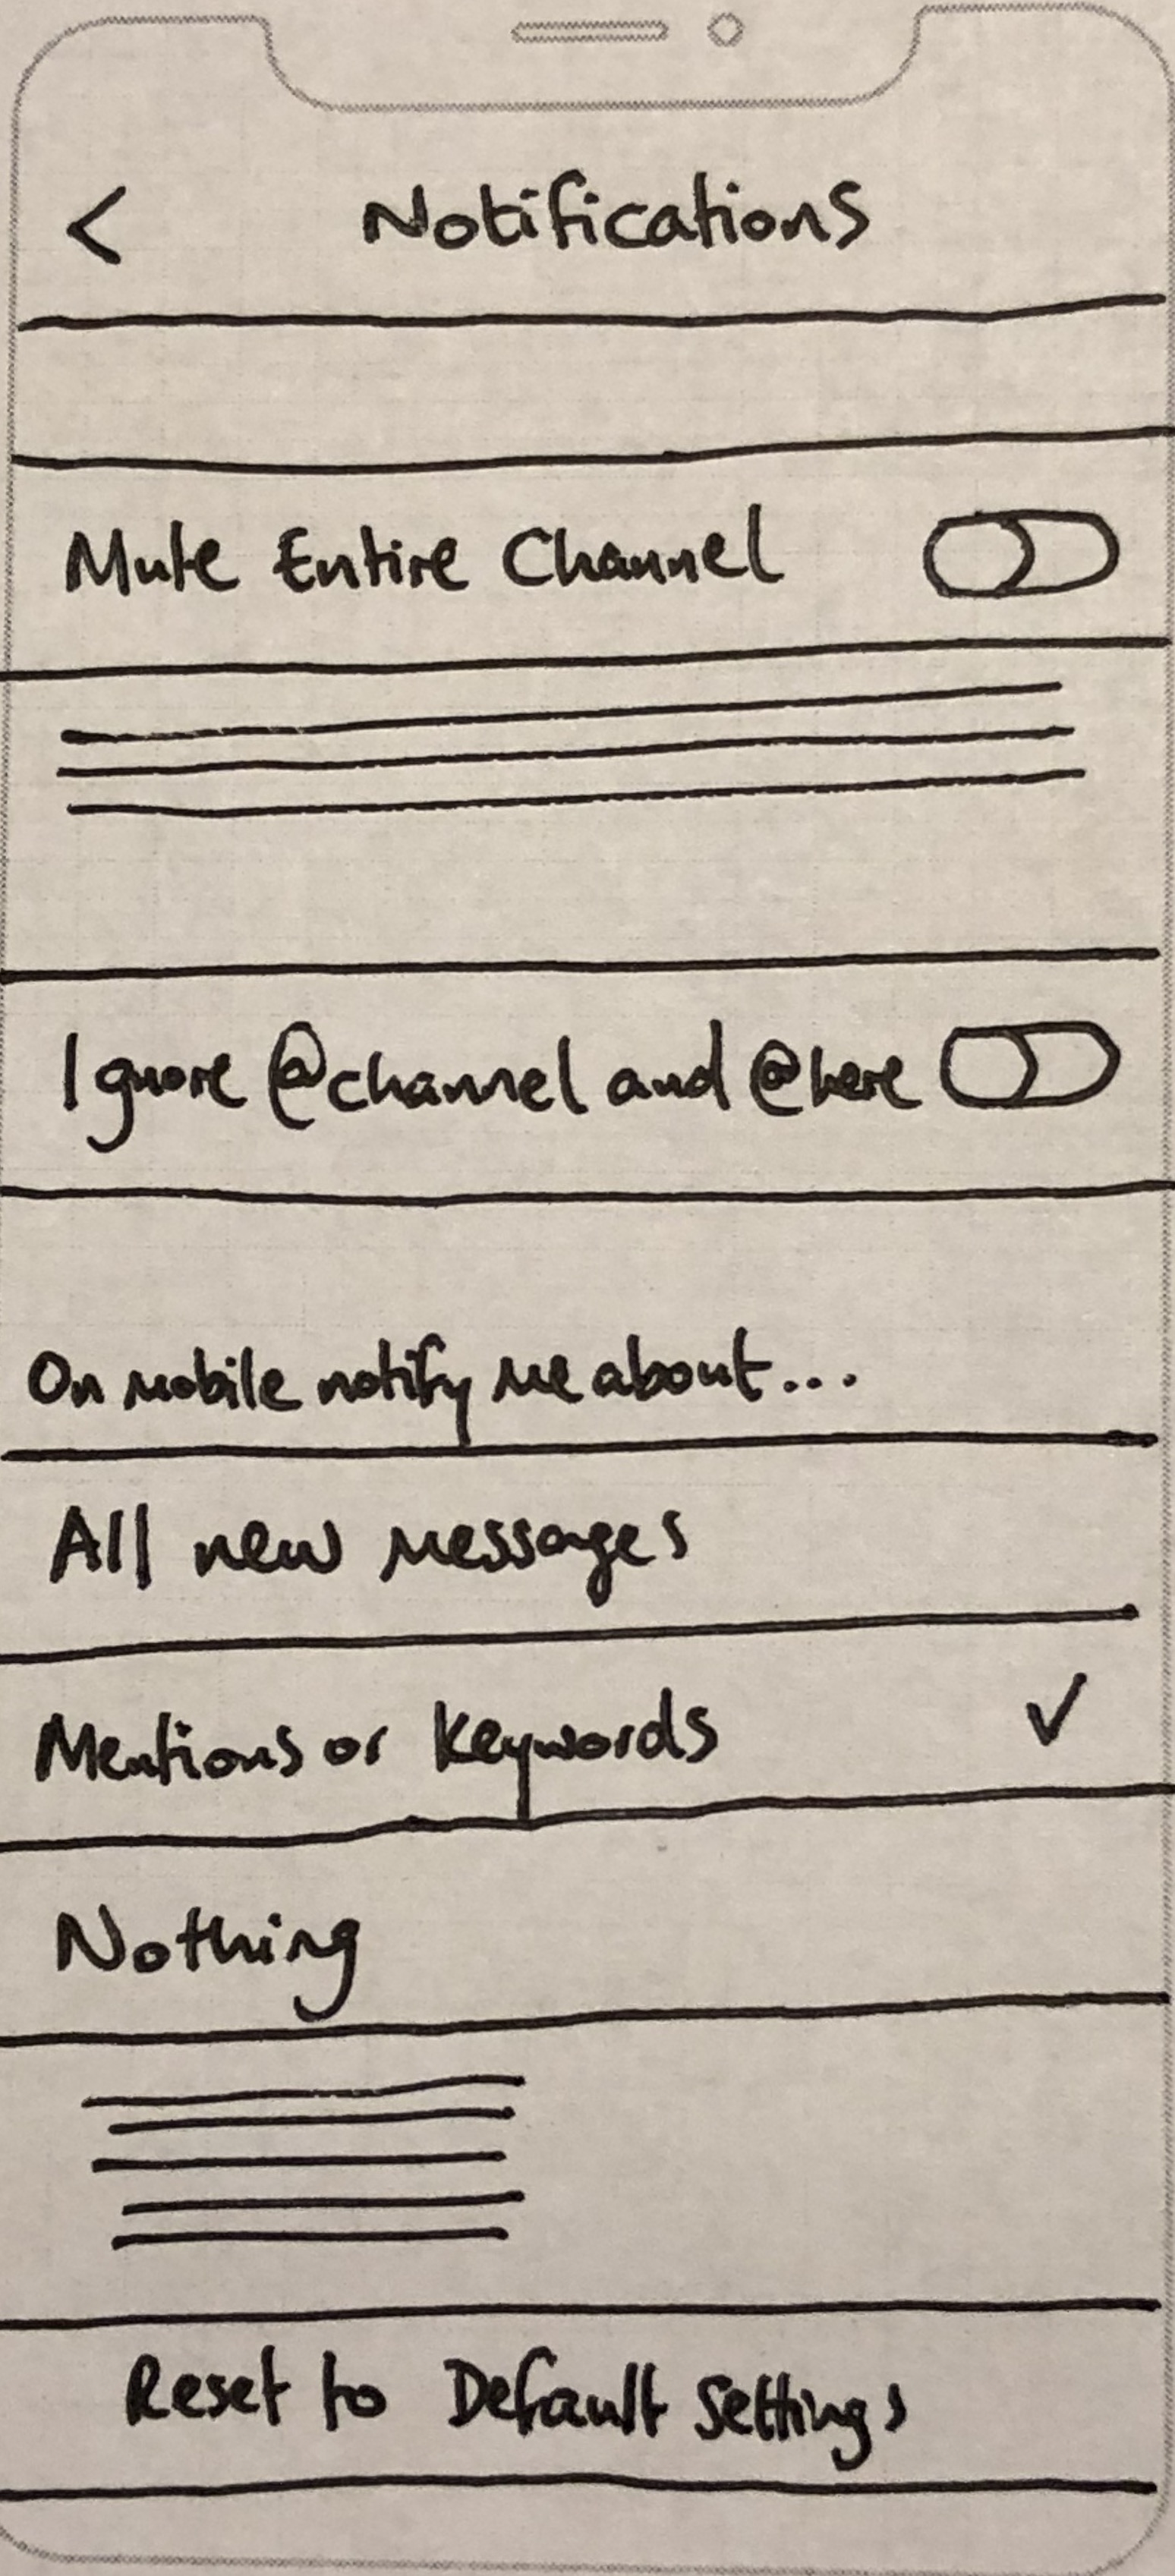 < Notifications
Mute Entire Channel
Ignore @channel and @here
On mobile notify me about...
All new messages
Mentions or Keywords ✓
Nothing
Reset to Default Settings